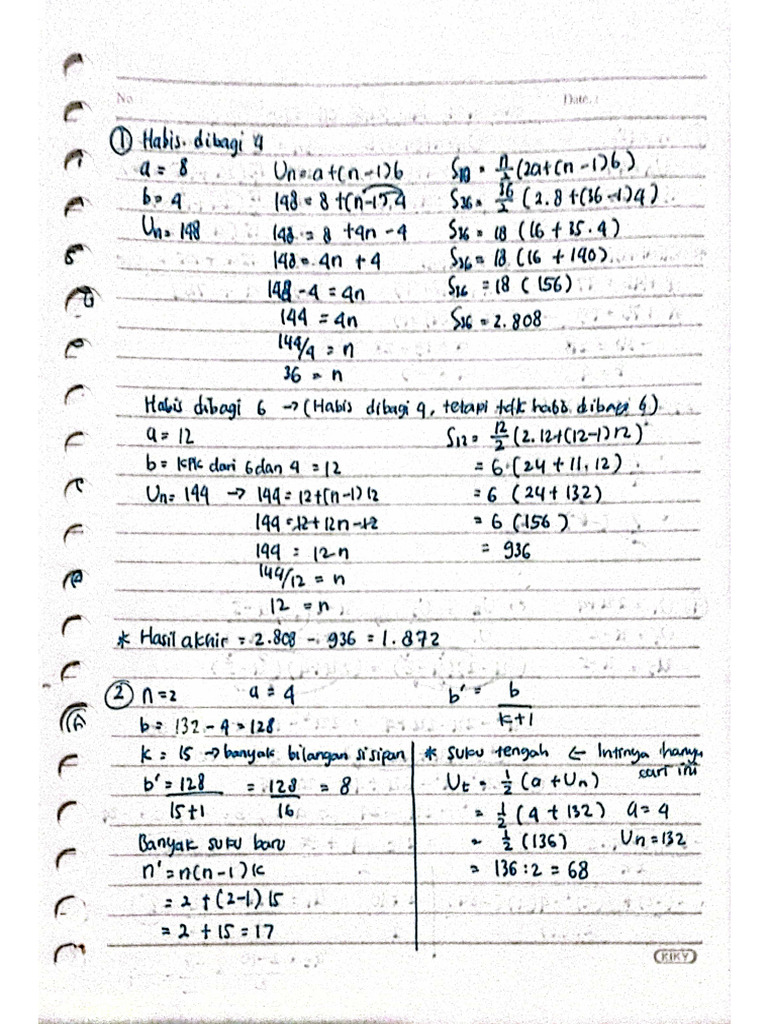 No
Date. :
① Habis dibagi 4
a = 8
b = 4
Un = 148
Un = a + (n - 1) b
148 = 8 + (n - 1).4
148 = 8 + 4n - 4
148 = 4n + 4
148 - 4 = 4n
144 = 4n
144/4 = n
36 = n
S10 = n/2 (2a + (n - 1) b)
S36 = 36/2 (2.8 + (36 - 1) 4)
S36 = 18 (16 + 35.4)
S36 = 18 (16 + 140)
S36 = 18 (156)
S36 = 2.808
Habis dibagi 6 → (Habis dibagi 4, tetapi tdk habis dibagi 6)
a = 12
b = KPK dari 6 dan 4 = 12
Un = 144 → 144 = 12 + (n - 1) 12
144 = 12 + 12n - 12
144 = 12n
144/12 = n
12 = n
S12 = 12/2 (2.12 + (12 - 1) 12)
= 6 (24 + 11.12)
= 6 (24 + 132)
= 6 (156)
= 936
* Hasil akhir = 2.808 - 936 = 1.872
② n = 2 a = 4
b = 132 - 4 = 128
k = 15 → banyak bilangan sisipan
b' = 128/15+1 = 128/16 = 8
Banyak suku baru
n' = n(n - 1) k
= 2 + (2 - 1) 15
= 2 + 15 = 17
b' = b/k+1
* suku tengah ← Intinya hanya
cari ini
Ut = 1/2 (a + Un)
= 1/2 (4 + 132) a = 4
= 1/2 (136) Un = 132
= 136 : 2 = 68
KIKY